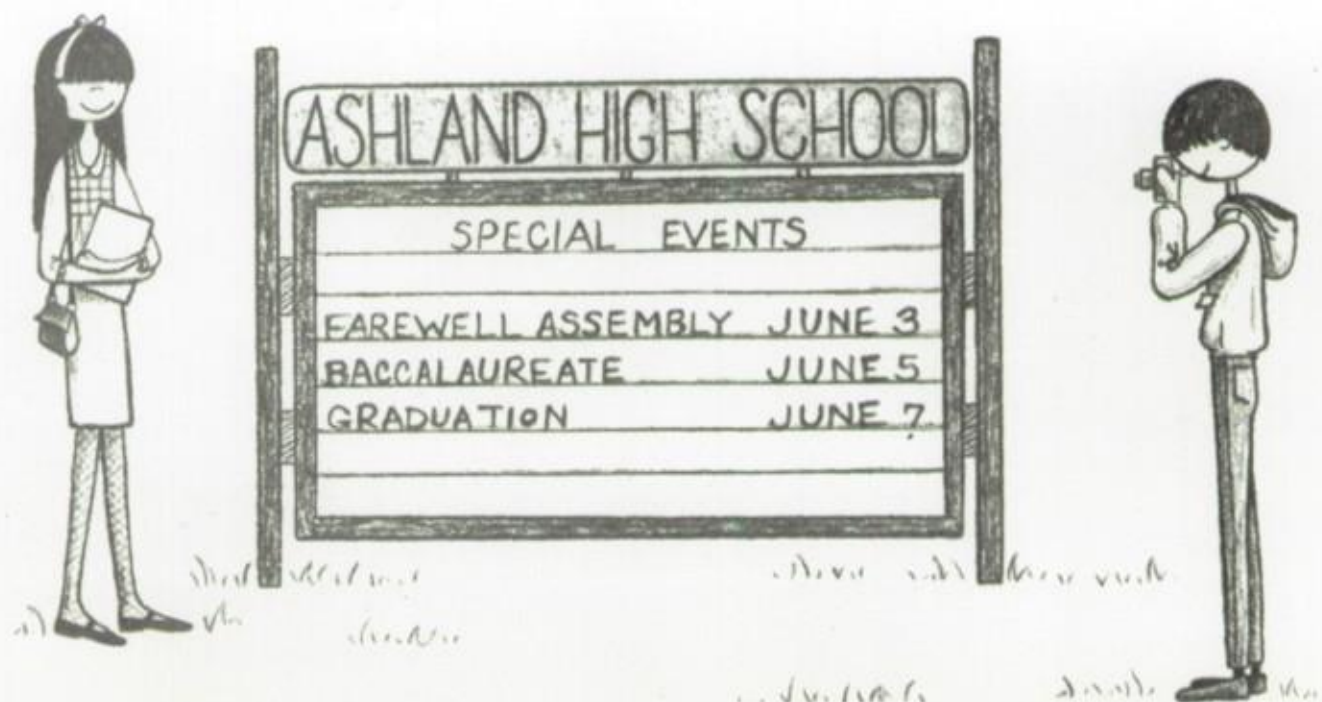 ASHLAND HIGH SCHOOL
SPECIAL EVENTS
FAREWELL ASSEMBLY JUNE 3
BACCALAUREATE JUNE 5
GRADUATION JUNE 7